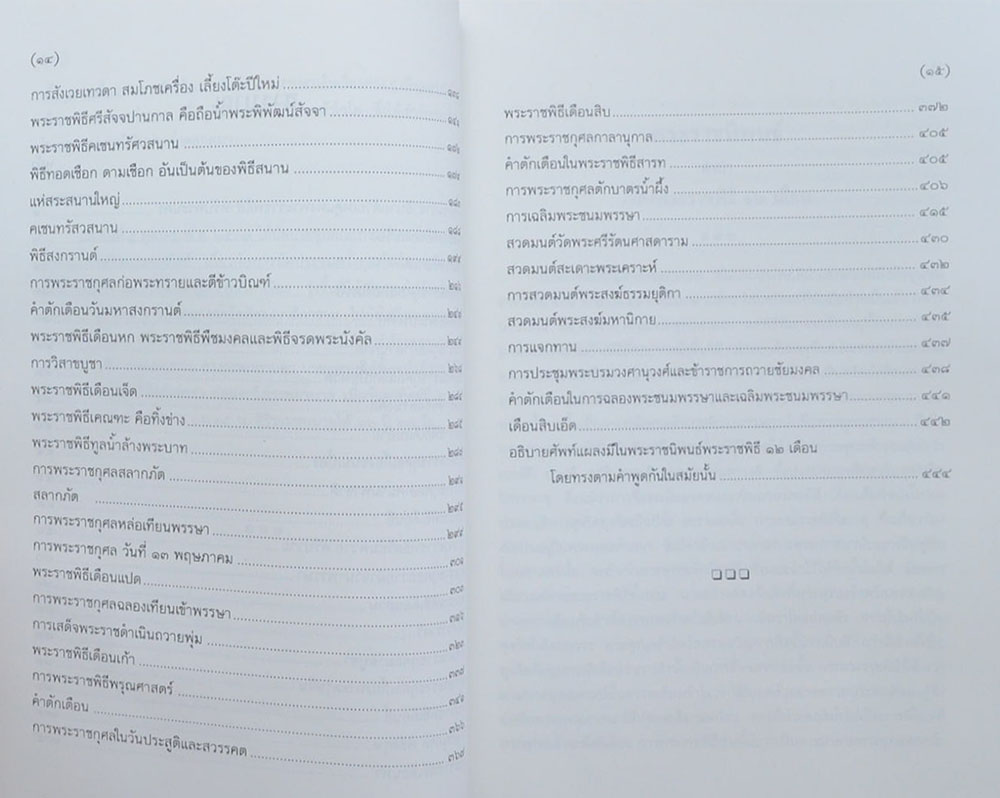 (๑๔)
การสังเวยเทวดา สมโภชเครื่อง เลี้ยงโต๊ะปีใหม่
พระราชพิธีศรีสัจจปานกาล คือถือน้ำพระพิพัฒน์สัจจา
พระราชพิธีคเชนทรัศวสนาน
พิธีทอดเชือก ดามเชือก อันเป็นต้นของพิธีสนาน
แห่สระสนานใหญ่
คเชนทรัสวสนาน
พิธีสงกรานต์
การพระราชกุศลก่อพระทรายและตีข้าวบิณฑ์
คำตักเตือนวันมหาสงกรานต์
พระราชพิธีเดือนหก พระราชพิธีพืชมงคลและพิธีจรดพระนังคัล
การวิสาขบูชา
พระราชพิธีเดือนเจ็ด
พระราชพิธีเคณฑะ คือทิ้งข่าง
พระราชพิธีทูลน้ำล้างพระบาท
การพระราชกุศลสลากภัด
สลากภัด
การพระราชกุศลหล่อเทียนพรรษา
การพระราชกุศล วันที่ ๑๓ พฤษภาคม
พระราชพิธีเดือนแปด
การพระราชกุศลฉลองเทียนเข้าพรรษา
การเสด็จพระราชดำเนินถวายพุ่ม
พระราชพิธีเดือนเก้า
การพระราชพิธีพรุณศาสตร์
คำตักเดือน
การพระราชกุศลในวันประสูติและสวรรคต
(๑๕)
พระราชพิธีเดือนสิบ ๓๗๒
การพระราชกุศลกาลานุกาล ๔๐๕
คำตักเดือนในพระราชพิธีสารท ๔๐๕
การพระราชกุศลตักบาตรน้ำผึ้ง ๔๐๖
การเฉลิมพระชนมพรรษา ๔๑๕
สวดมนต์วัดพระศรีรัตนศาสดาราม ๔๓๐
สวดมนต์สะเดาะพระเคราะห์ ๔๓๒
การสวดมนต์พระสงฆ์ธรรมยุติกา ๔๓๔
สวดมนต์พระสงฆ์มหานิกาย ๔๓๕
การแจกทาน ๔๓๗
การประชุมพระบรมวงศานุวงศ์และข้าราชการถวายชัยมงคล ๔๓๘
คำตักเดือนในการฉลองพระชนมพรรษาและเฉลิมพระชนมพรรษา ๔๔๑
เดือนสิบเอ็ด ๔๔๒
อธิบายศัพท์แผลงมีในพระราชนิพนธ์พระราชพิธี ๑๒ เดือน
โดยทรงตามคำพูดกันในสมัยนั้น ๔๔๔